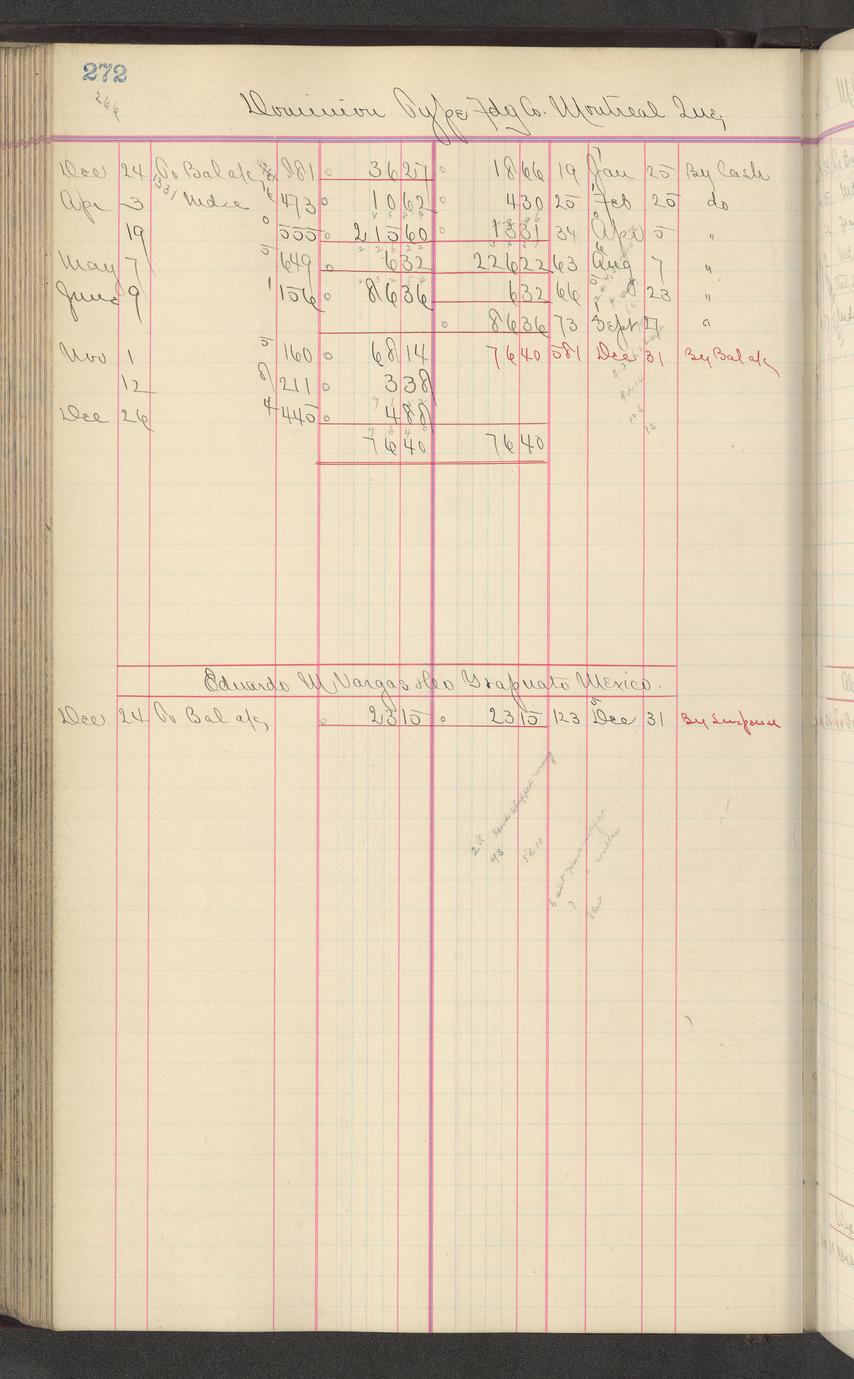 272
266
Dominion Type Fdg Co. Montreal Que,
Dec 24 To Bal a/c 981 36 27 18 66 19 Jan 25 By Cash
Apr 3 " Mdse 473 10 62 4 30 25 Feb 25 do
19 555 215 60 13 31 34 Apr 5 "
May 7 649 6 32 226 22 63 Aug 7 "
June 9 156 86 36 6 32 66 " 23 "
86 36 73 Sept 27 "
Nov 1 160 68 14 76 40 581 Dec 31 By Bal a/c
12 211 3 38
Dec 26 445 4 88
76 40 76 40
Eduardo M Vargas Mexico.
Dec 24 To Bal a/c 23 15 23 15 123 Dec 31 By Suspense